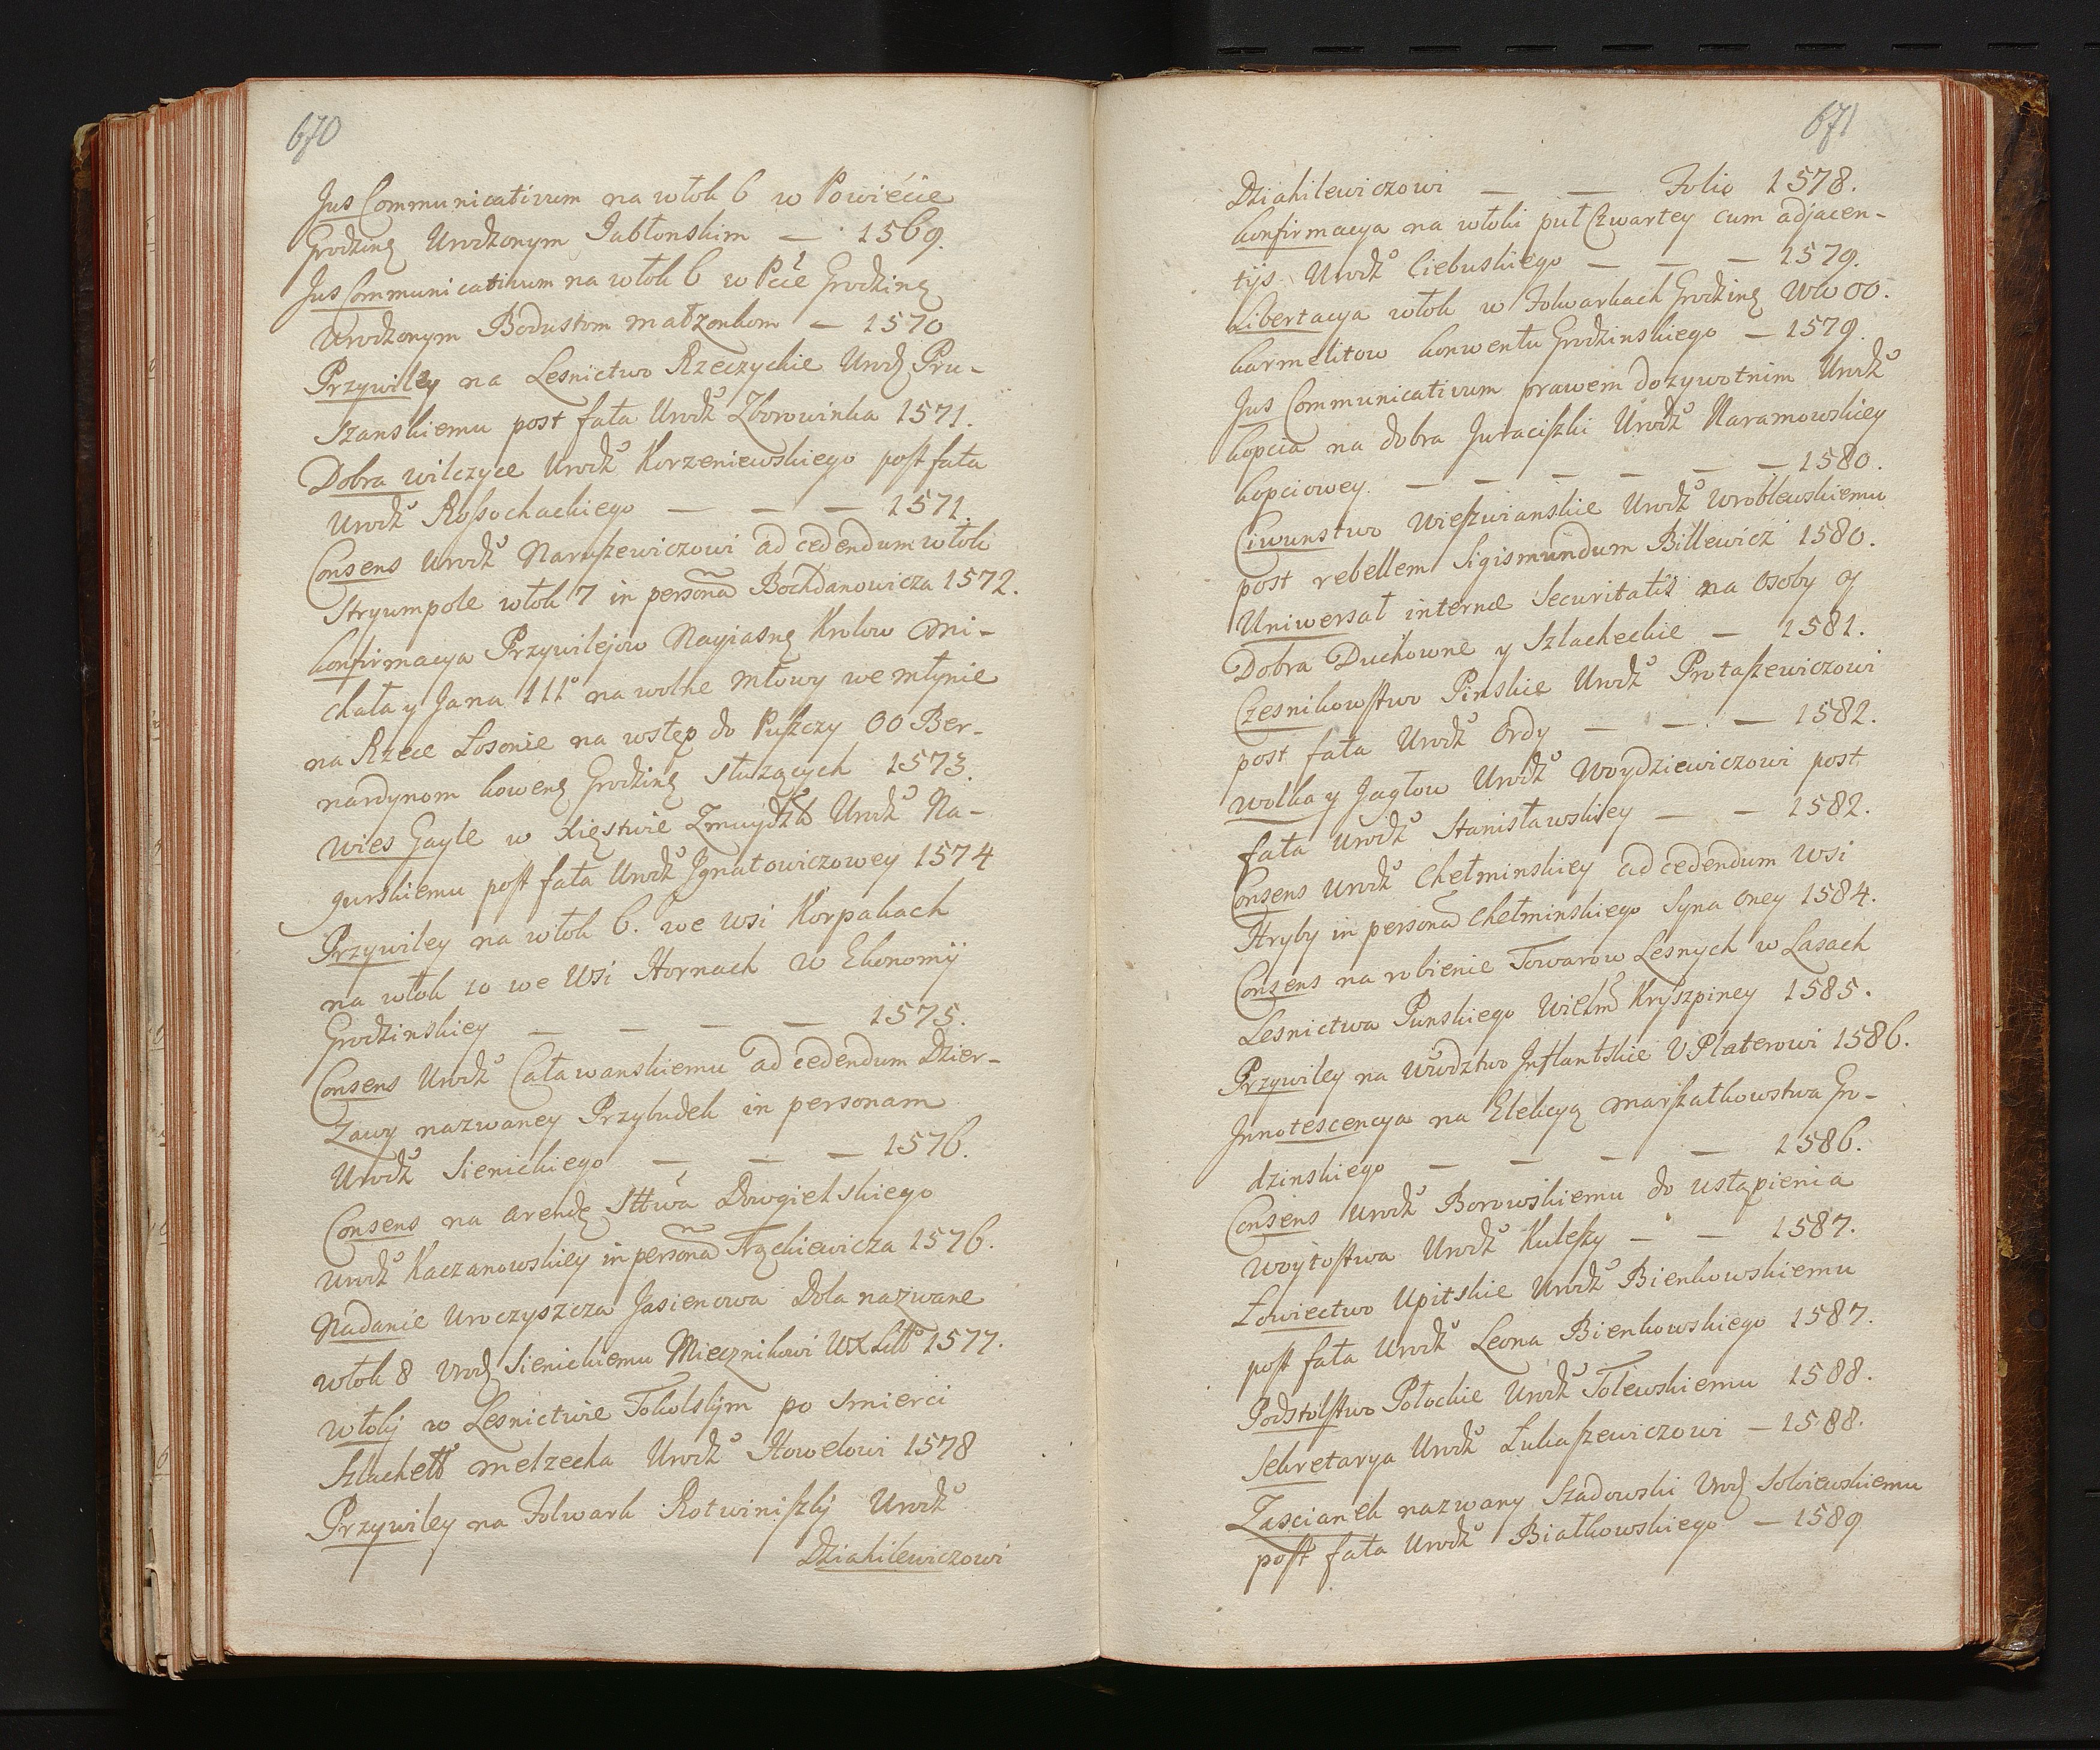 670
Jus Communicativum na włok 6 w Powiécie
Grodzinę Urodzonym Jabłonskim — 1569.
Jus Communicativum na włok 6 w Pcie Grodzinę
Urodzonym Bodustom małzonkom — 1570
Przywiley na Lesnictwo Rzeczyckie Urodz Pru-
szanskiemu post fata Urodzo Zborowinka 1571.
Dobra wilczyce Urodzo Korzeniewskiego post fata
Urodzo Rossochackiego — — — 1571.
Consens Urodzo Naruszewiczowi ad cedendum włoki
Stryumpole włok 7 in persona Bochdanowicza 1572.
Konfirmacya Przywilejow Nayiasnę Krolow Mi-
chała y Jana 111o na wolne Młowy we młynie
na Rzece Łosonie na wstęp do Puszczy OO Ber-
nardynom kowenę Grodzinę słuzących 1573.
Wies Gayle w Xięstwie Zmuydzo Urodzo Na-
gurskiemu post fata Urodzo Jgnatowiczowey 1574
Przywiley na włok 6. we wsi Korpakach
na włok 10 we Wsi Hornach w Ekonomij
Grodzinskiey — — — — 1575.
Consens Urodzo Catawanskiemu ad cedendum Dzier-
zawy nazwaney Przybudek in personam
Urodzo Sienickiego — — — 1576.
Consens na arendę Sttwa Dowgielskiego
Urodzo Kaczanowskiey in persona Frąckiewicza 1576.
Nadanie Uroczyszcza Jasienowa Dola nazwane
włok 8 Urodz Sienickiemu Miecznikowi WX Litto 1577.
Włoky w Lesnictwie Tokolskym po Smierci
Szlachetto melzecka Urodzo Howelowi 1578
Przywiley na Folwark Rotwiniszky Urodzo
Dziakilewiczowi
671
Dziakilewiczowi — — Folio 1578.
Konfirmacya na włoki puł Czwartey cum adjacen-
tijs Urodzo Ciebuskiego — — — 1579.
Libertacya włok w Folwarkach Grodzinę WW OO.
Karmelitow konwentu Grodzinskiego — 1579.
Jus Communicativum prawem dozywotnim Urodzo
Kopcia na dobra Juraciszki Urodzo Karamowskiey
Kopciowey. — — — — — — 1580.
Ciwunstwo Wieszwianskie Urodzo Wroblewskiemu
post rebellem Sigismundum Billewicz 1580.
Uniwersał internæ Securitatis na Osoby y
Dobra Duchowne y Szlacheckie — 1581.
Czesnikowstwo Pinskie Urodzo Protaszewiczowi
post fata Urodzo Ordy — — — 1582.
Wolka y Jagłow Urodzo Woydziewiczowi post
fata Urodzo Stanisławskiey — — 1582.
Consens Urodzo Chełminskiey ad cedendum Wsi
Hryby in persona Chełminskiego Syna Oney 1584.
Consens na robienie Towarow Lesnych w Lasach
Lesnictwa Punskiego Wielm Kryszpiney 1585.
Przywiley na Wwodztwo Jnflantskie V Platerowi 1586.
Jnnotescencya na Elekcyą marszałkowstwa Gro-
dzinskiego — — — — 1586.
Consens Urodzo Borowskiemu do ustąpienia
Woytostwa Urodzo Kuleszy — — 1587.
Łowiectwo Upitskie Urodzo Bienkowskiemu
post fata Urodzo Leona Bienkowskiego 1587.
Podstolstwo Połockie Urodzo Tolewskiemu 1588.
Sekretarya Urodzo Łukaszewiczowi — 1588.
Zascianek nazwany Szadowski Urodz Solwiewskiemu
post fata Urodzo Białkowskiego — 1589